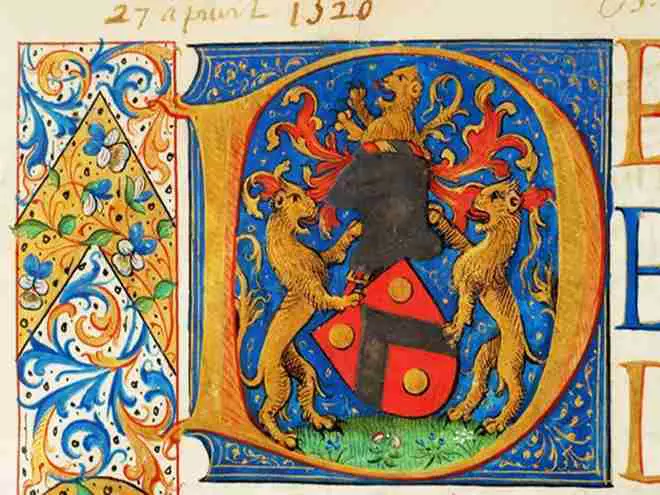 27 apuril 1520
D E
E